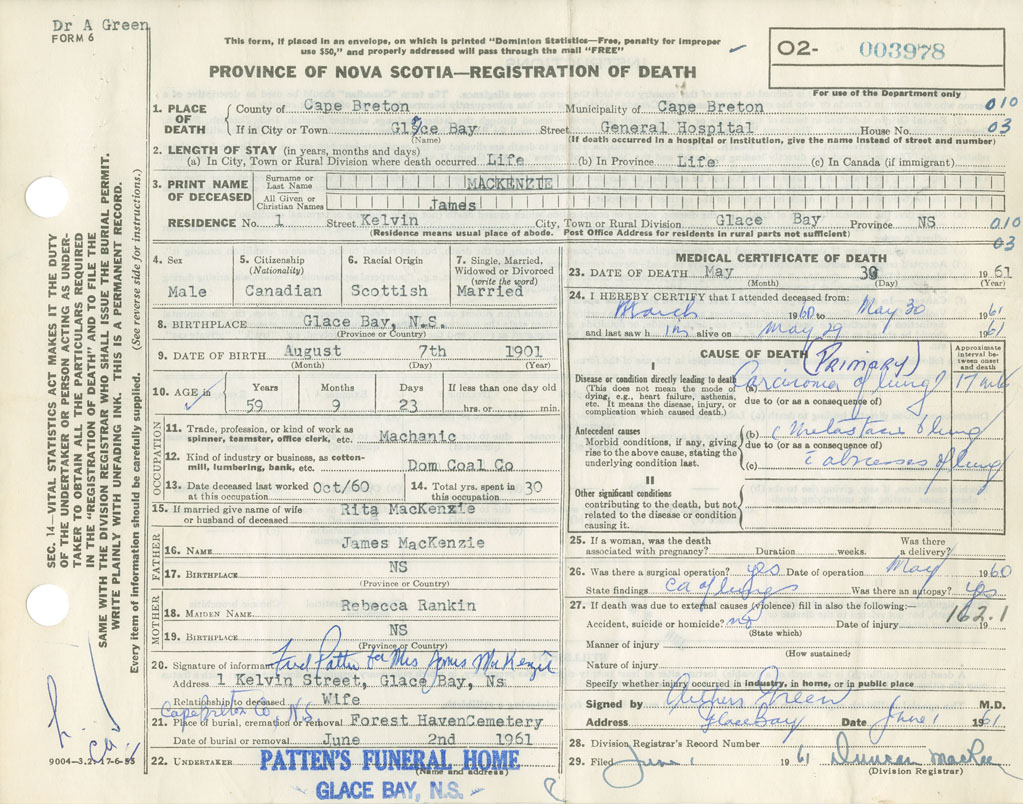 Dr A Green
FORM 6
This form, if placed in an envelope, on which is printed "Dominion Statistics—Free, penalty for improper
use $50," and properly addressed will pass through the mail "FREE"
O2- 003978
For use of the Department only
PROVINCE OF NOVA SCOTIA—REGISTRATION OF DEATH
1. PLACE OF DEATH
County of Cape Breton Municipality of Cape Breton 010
If in City or Town Glace Bay Street General Hospital House No. 03
(Name) (If death occurred in a hospital or institution, give the name instead of street and number)
2. LENGTH OF STAY (in years, months and days)
(a) In City, Town or Rural Division where death occurred Life (b) In Province Life (c) In Canada (if immigrant)
3. PRINT NAME OF DECEASED
Surname or Last Name MACKENZIE
All Given or Christian Names James
RESIDENCE No. 1 Street Kelvin City, Town or Rural Division Glace Bay Province NS 010
(Residence means usual place of abode. Post Office Address for residents in rural parts not sufficient) 03
4. Sex
Male
5. Citizenship
(Nationality)
Canadian
6. Racial Origin
Scottish
7. Single, Married,
Widowed or Divorced
(write the word)
Married
8. BIRTHPLACE Glace Bay, N.S.
(Province or Country)
9. DATE OF BIRTH August 7th 1901
(Month) (Day) (Year)
10. AGE in Years Months Days If less than one day old
59 9 23 hrs. or min.
OCCUPATION
11. Trade, profession, or kind of work as
spinner, teamster, office clerk, etc. Machanic
12. Kind of industry or business, as cotton-
mill, lumbering, bank, etc. Dom Coal Co
13. Date deceased last worked
at this occupation Oct/60
14. Total yrs. spent in
this occupation 30
15. If married give name of wife
or husband of deceased Rita MacKenzie
FATHER
16. NAME James MacKenzie
17. BIRTHPLACE NS
(Province or Country)
MOTHER
18. MAIDEN NAME Rebecca Rankin
19. BIRTHPLACE NS
(Province or Country)
20. Signature of informant Fred Patten for Mrs James MacKenzie
Address 1 Kelvin Street, Glace Bay, Ns
Relationship to deceased Wife
Cape Breton Co N.S.
21. Place of burial, cremation or removal Forest HavenCemetery
Date of burial or removal June 2nd 1961
22. UNDERTAKER PATTEN'S FUNERAL HOME
(Name and address)
GLACE BAY, N.S.
MEDICAL CERTIFICATE OF DEATH
23. DATE OF DEATH May 30 1961
(Month) (Day) (Year)
24. I HEREBY CERTIFY that I attended deceased from:
March 1960 to May 30 1961
and last saw him alive on May 29 1961
CAUSE OF DEATH (PRIMARY)
Approximate
interval be-
tween onset
and death
I
Disease or condition directly leading to death
(This does not mean the mode of
dying, e.g., heart failure, asthenia,
etc. It means the disease, injury, or
complication which caused death.)
(a) Carcinoma of lung
due to (or as a consequence of)
Antecedent causes
Morbid conditions, if any, giving
rise to the above cause, stating the
underlying condition last.
(b)
due to (or as a consequence of)
(c) abscesses of lung
II
Other significant conditions
contributing to the death, but not
related to the disease or condition
causing it.
25. If a woman, was the death
associated with pregnancy? Duration weeks. Was there
a delivery?
26. Was there a surgical operation? yes Date of operation May 1960
State findings ca of lungs Was there an autopsy? yes
27. If death was due to external causes (violence) fill in also the following:—
162.1
Accident, suicide or homicide? no Date of injury 19
(State which)
Manner of injury
(How sustained)
Nature of injury
Specify whether injury occurred in industry, in home, or in public place
Signed by Green M.D.
Address Glace Bay Date June 1 1961
28. Division Registrar's Record Number
29. Filed June 1 1961 Duncan
(Division Registrar)
SEC. 14—VITAL STATISTICS ACT MAKES IT THE DUTY
OF THE UNDERTAKER OR PERSON ACTING AS UNDER-
TAKER TO OBTAIN ALL THE PARTICULARS REQUIRED
IN THE "REGISTRATION OF DEATH" AND TO FILE THE
SAME WITH THE DIVISION REGISTRAR WHO SHALL ISSUE THE BURIAL PERMIT.
WRITE PLAINLY WITH UNFADING INK. THIS IS A PERMANENT RECORD.
Every item of information should be carefully supplied. (See reverse side for instructions.)